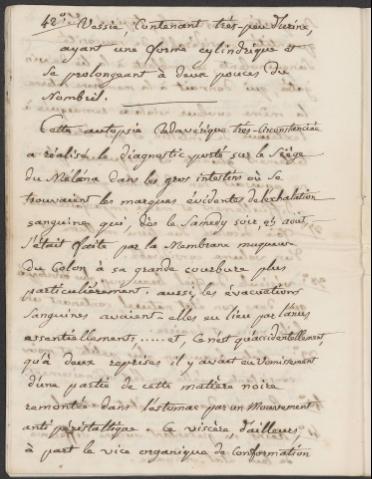 42.° Vessie Contenant très-peu d'urine,
ayant une forme cylindrique et
se prolongeant à deux pouces du
Nombril.
Cette autopsie Cadavérique très-circonstanciée
a réalisé le diagnostic porté sur le Siège
du Méléna dans les gros intestins où se
trouvaient les marques évidentes de l'exhalation
sanguine qui, dès le Samedy soir, août
s'était faite par la Membrane muqueuse
du Colon à sa grande courbure plus
particulièrement. aussi, les évacuations
Sanguines avaient-elles eu lieu par l'anus
essentiellement ...... et, Ce n'est qu'accidentellement,
qu'à deux reprises il y avait eu Vomissement
d'une partie de cette matière noire
remontée dans l'estomac par un Mouvement
anti péristaltique. Ce viscère, d'ailleurs,
à part le vice organique de Conformation